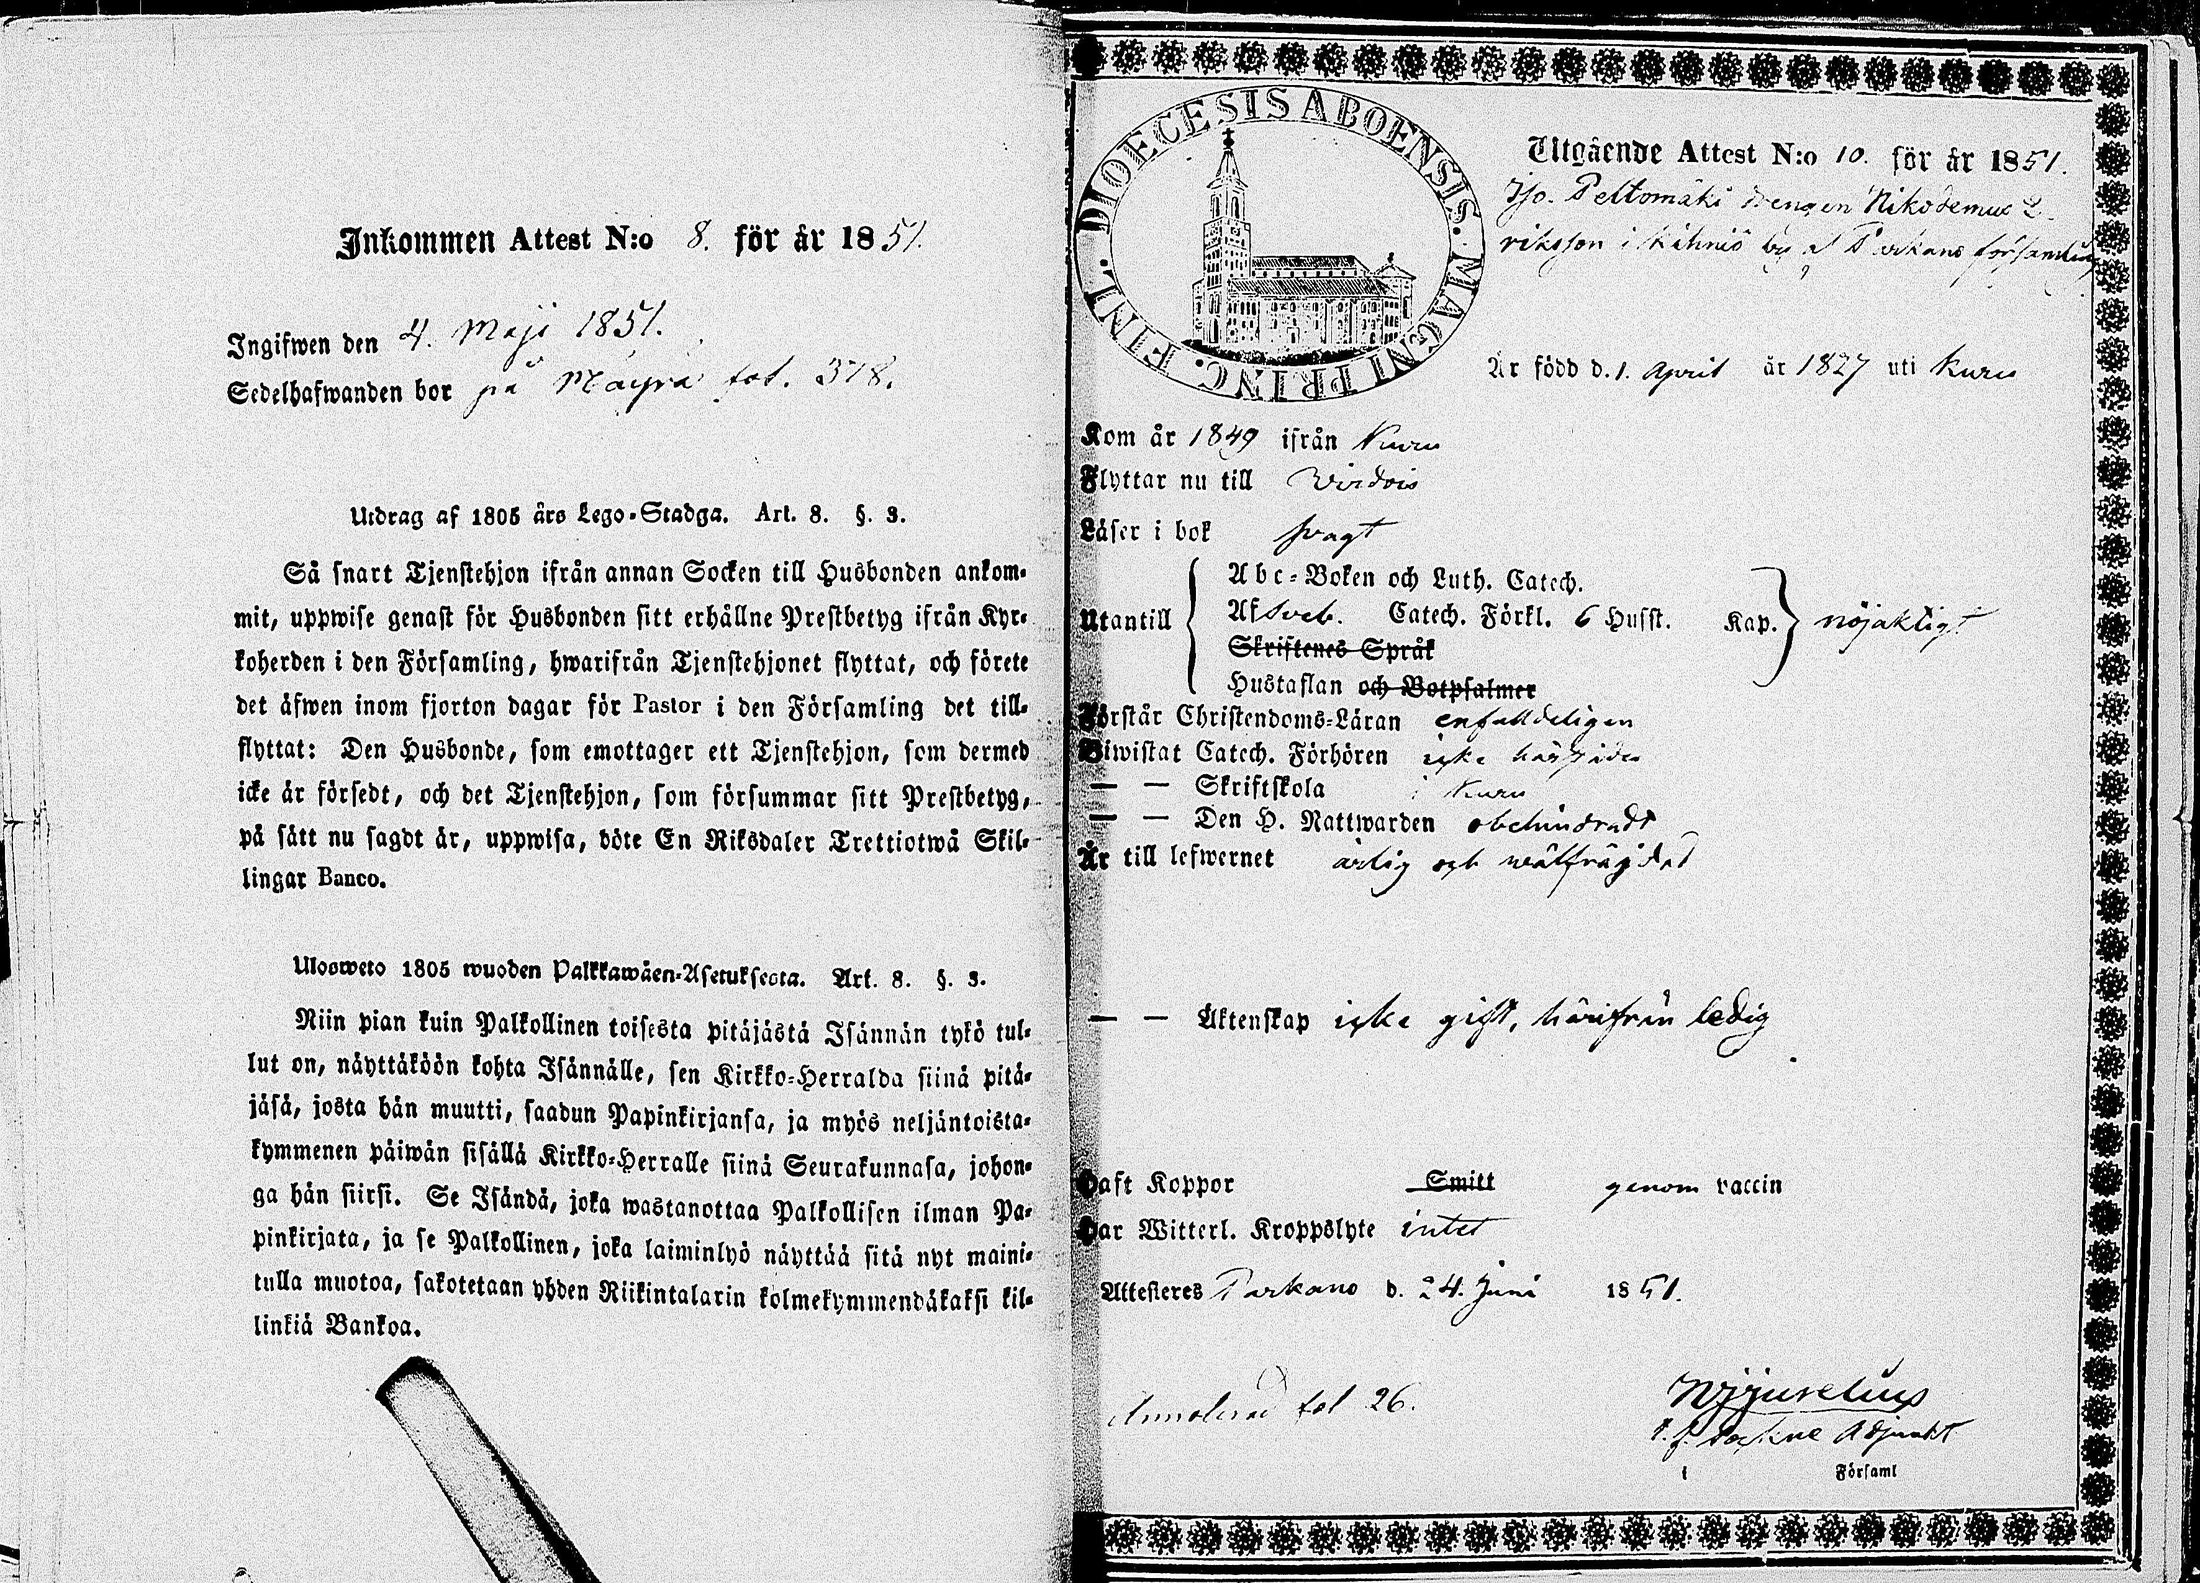 Inkommen Attest N:o 8. för år 1851.
Ingifwen den 4. Maji 1851.
Sedelhafwanden bor på Mäyrä fol. 378.
Utdrag af 1805 års Lego-Stadga. Art. 8. §. 3.
Så snart Tjenstehjon ifrån annan Socken till Husbonden ankom-
mit, uppwise genast för Husbonden sitt erhållne Prestbetyg ifrån Kyr-
koherden i den Församling, hwarifrån Tjenstehjonet flyttat, och förete
det äfwen inom fjorton dagar för Pastor i den Församling det till-
flyttat: Den Husbonde, som emottager ett Tjenstehjon, som dermed
icke är försedt, och det Tjenstehjon, som försummar sitt Prestbetyg,
på sätt nu sagdt är, uppwisa, böte En Riksdaler Trettiotwå Skil-
lingar Banco.
Ulosweto 1805 wuoden Palkkawäen-Asetuksesta. Art. 8. §. 3.
Niin pian kuin Palkollinen toisesta pitäjästä Isännän tykö tul-
lut on, näyttäköön kohta Isännälle, sen Kirkko-Herralda siinä pitä-
jäsä, josta hän muutti, saadun Papinkirjansa, ja myös neljäntoista-
kymmenen päiwän sisällä Kirkko-Herralle siinä Seurakunnasa, johon-
ga hän siirsi. Se Isändä, joka wastanottaa Palkollisen ilman Pa-
pinkirjata, ja se Palkollinen, joka laiminlyö näyttää sitä nyt maini-
tulla muotoa, sakotetaan yhden Riikintalarin kolmekymmendäkaksi kil-
linkiä Bankoa.
DIOECESIS ABOENSIS. MAGNI PRINC. FINL.
Utgående Attest N:o 10. för år 1851.
Peltomäki drengen Nikodemus E-
riksson i Kihniö by af Parkano församling
Är född d. 1. April år 1827 uti Kuru
Kom år 1849 ifrån Kuru
Flyttar nu till Wirdois
Läser i bok svagt
Utantill
Abc-Boken och Luth. Catech.
Af Sveb. Catech. Förkl. 6 Husst. Kap. nöjaktigt
Skriftenes Språk
Hustaflan och Botpsalmer
Förstår Christendoms-Läran enfalldeligen
Biwistat Catech. Förhören icke
— — Skriftskola i Kuru
— — Den H. Nattwarden obehindradt
Är till lefwernet ärlig och wälfräjdad
— — Äktenskap icke gift, härifrån ledig
Haft Koppor Smitt genom vaccin
Har Witterl. Kroppslyte intet
Attesteres Parkano d. 24. Juni 1851.
Annoterad fol 26.
Adjunkt
i Församl